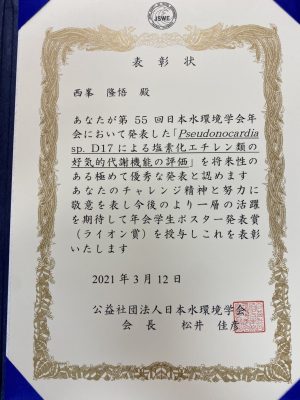 JSWE
表彰状
西峯 隆悟 殿
あなたが第 55 回日本水環境学会年
会において発表した「Pseudonocardia
sp. D17 による塩素化エチレン類の
好気的代謝機能の評価」を将来性の
ある極めて優秀な発表と認めます
あなたのチャレンジ精神と努力に
敬意を表し今後のより一層の活躍
を期待して年会学生ポスター発表賞
（ライオン賞）を授与しこれを表彰
いたします
2021 年 3 月 12 日
公益社団法人日本水環境学会
会 長 松井 佳彦